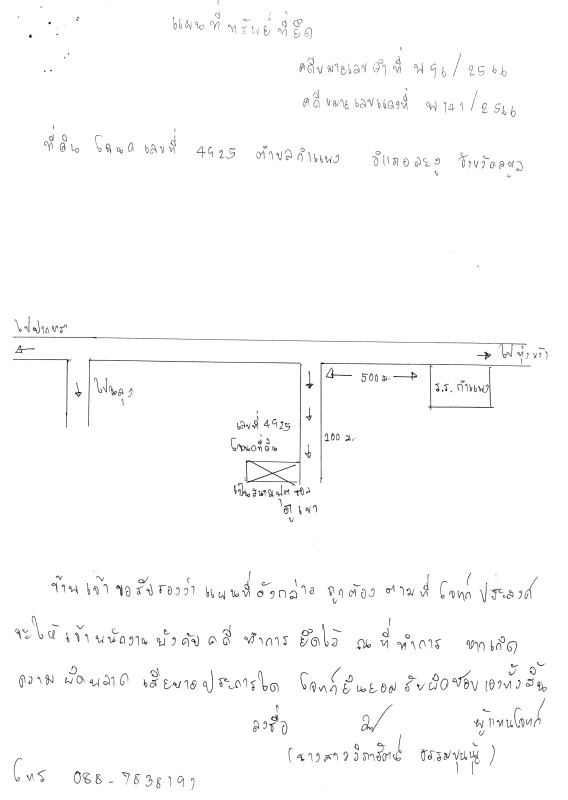 แผนที่ทรัพย์ที่ยึด
คดีหมายเลขดำที่ ผ 96/2566
คดีหมายเลขแดงที่ ผ 141/2566
ที่ดิน โฉนดเลขที่ 4925 ตำบลกำแพง อำเภอละงู จังหวัดสตูล
ไปปากบารา
ไปทุ่งหว้า
ไปละงู
500 ม.
ร.ร. กำแพง
เลขที่ 4925
โฉนดที่ดิน
100 ม.
เป็นสนามฟุตซอล
ข้าพเจ้าขอรับรองว่า แผนที่ดังกล่าว ถูกต้อง ตามที่ โจทก์ ประสงค์
จะให้เจ้าพนักงานบังคับคดี ทำการ ยึดไว้ ณ ที่ทำการ หากเกิด
ความผิดพลาด เสียหายประการใด โจทก์ยินยอมรับผิดชอบเองทั้งสิ้น
ลงชื่อ ผู้แทนโจทก์
(นางสาว
โทร 088-7838191